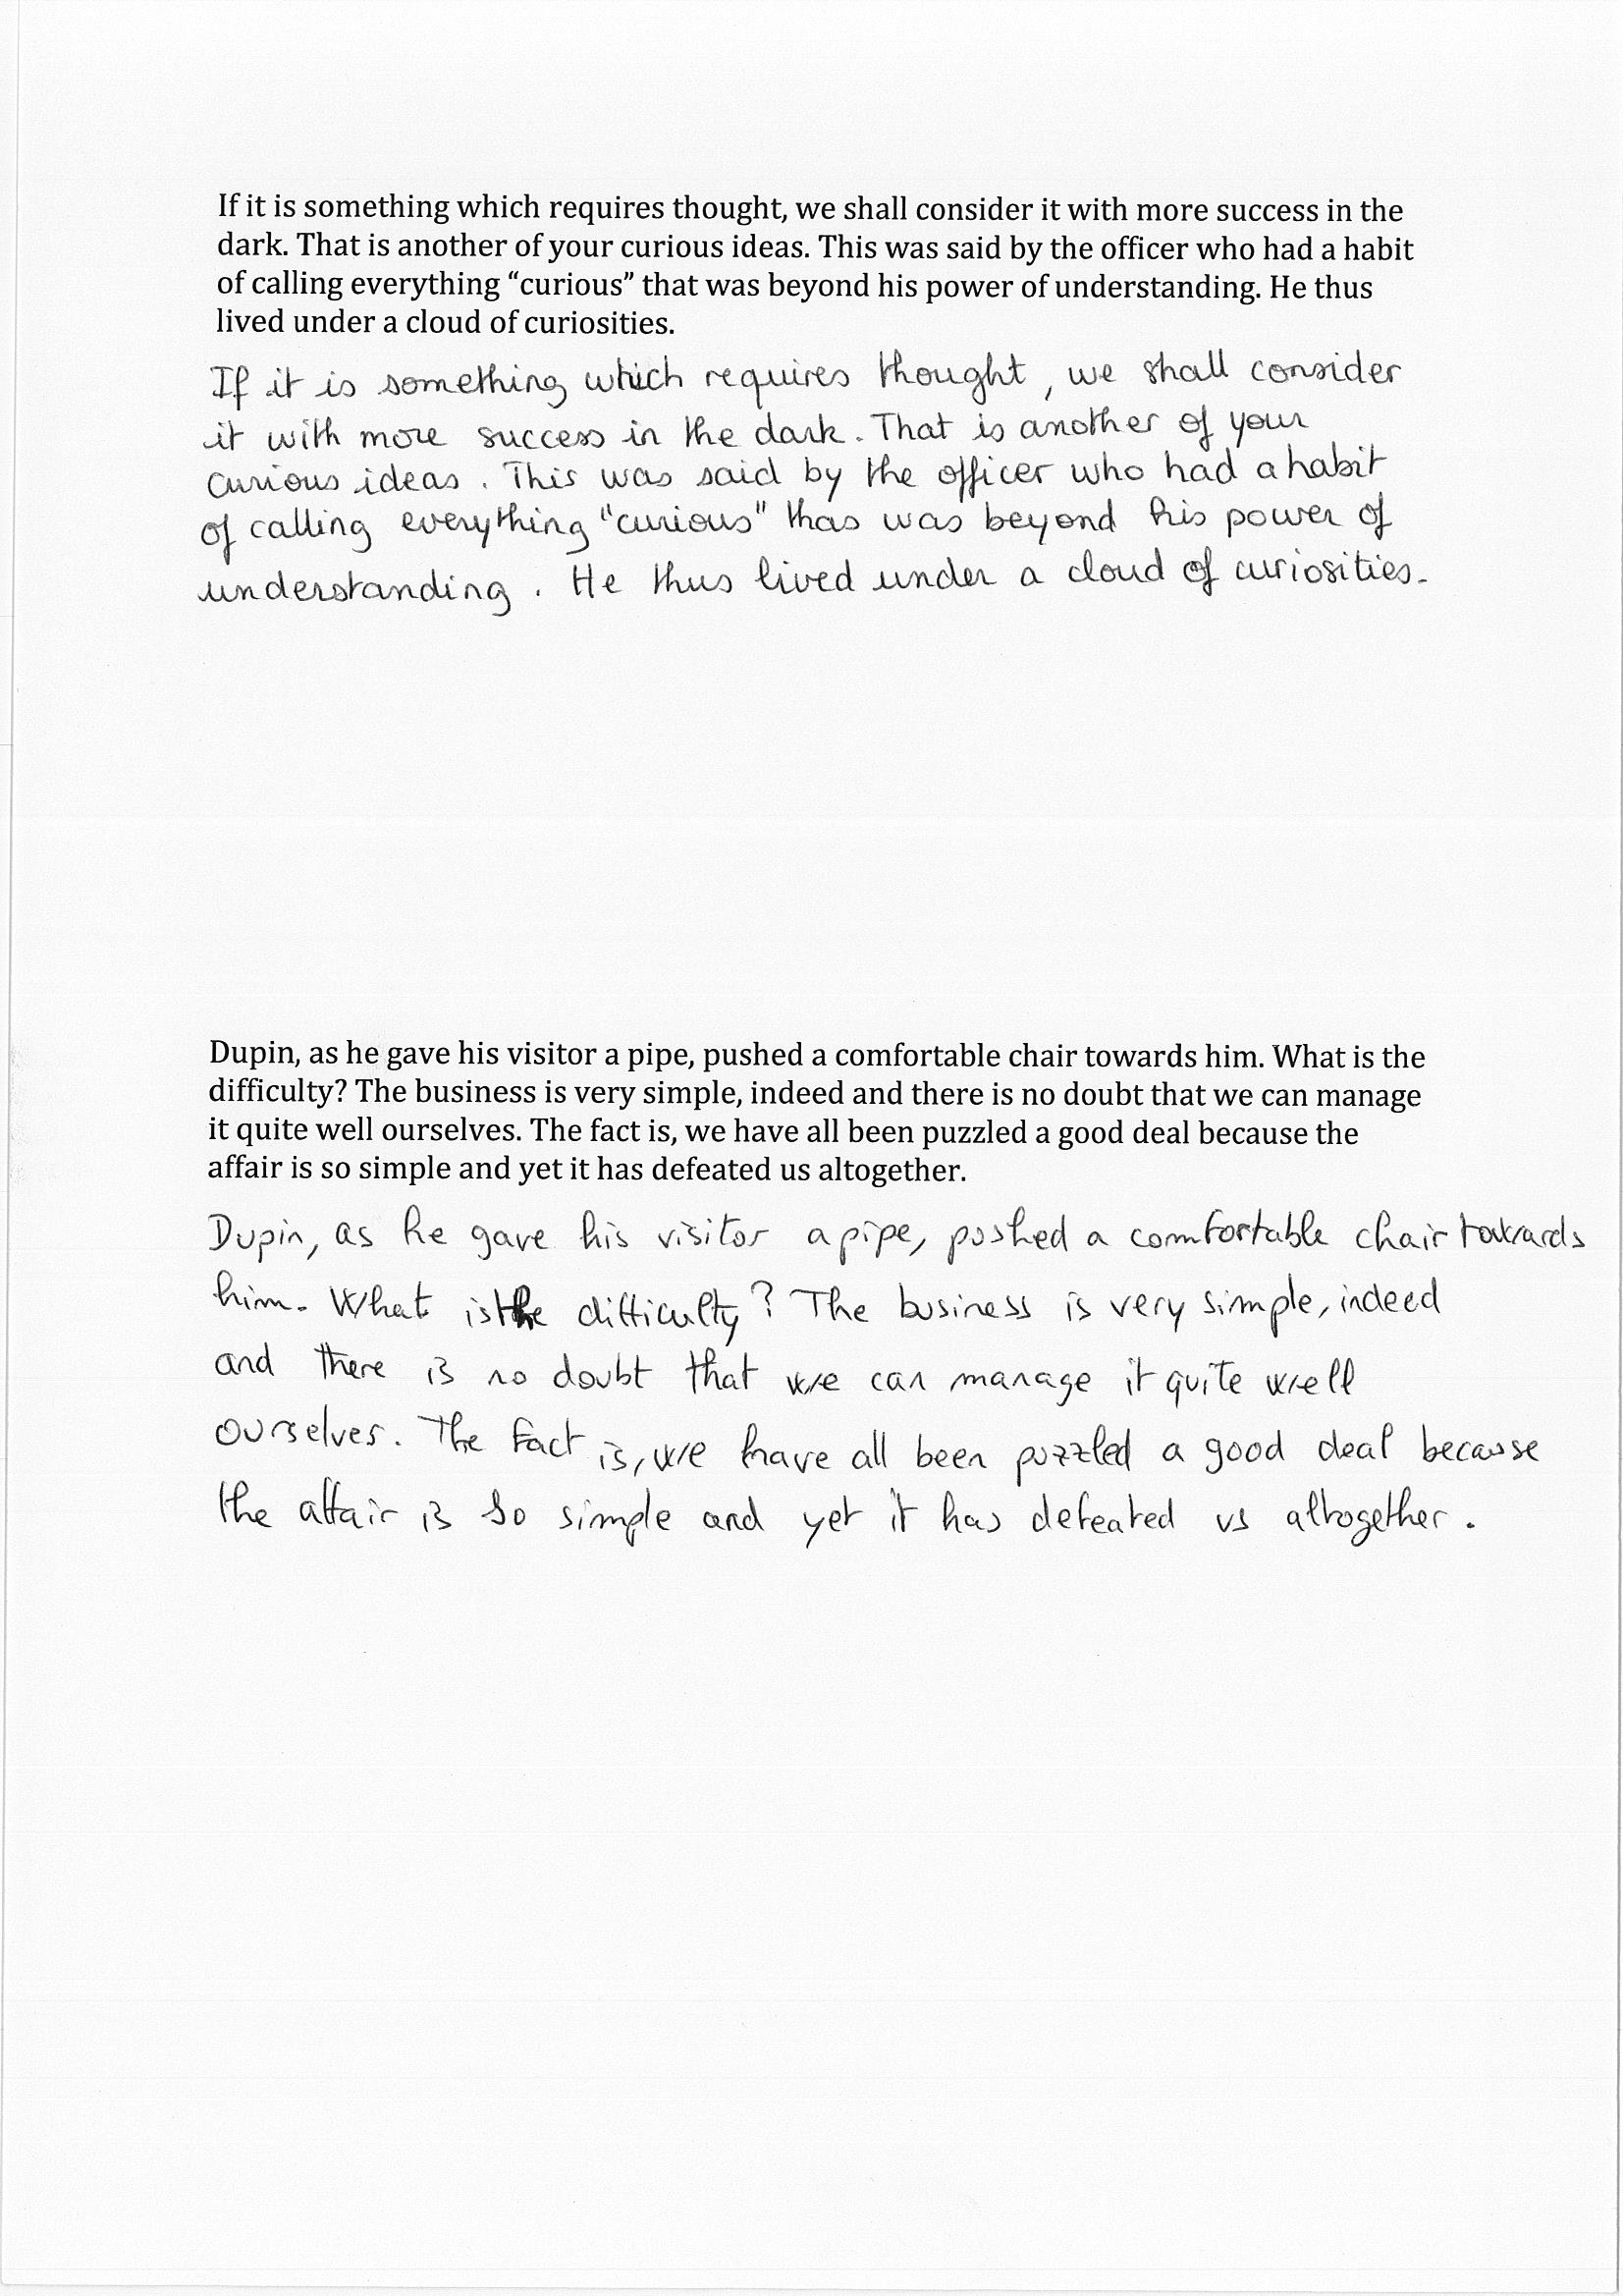 If it is something which requires thought, we shall consider it with more success in the
dark. That is another of your curious ideas. This was said by the officer who had a habit
of calling everything “curious” that was beyond his power of understanding. He thus
lived under a cloud of curiosities.
If it is something which requires thought, we shall consider
it with more success in the dark. That is another of your
curious ideas. This was said by the officer who had a habit
of calling everything "curious" thas was beyond his power of
understanding. He thus lived under a cloud of curiosities.
Dupin, as he gave his visitor a pipe, pushed a comfortable chair towards him. What is the
difficulty? The business is very simple, indeed and there is no doubt that we can manage
it quite well ourselves. The fact is, we have all been puzzled a good deal because the
affair is so simple and yet it has defeated us altogether.
Dupin, as he gave his visitor a pipe, pushed a comfortable chair towards
him. What is the difficulty? The business is very simple, indeed
and there is no doubt that we can manage it quite well
ourselves. The fact is, we have all been puzzled a good deal because
the affair is so simple and yet it has defeated us altogether.